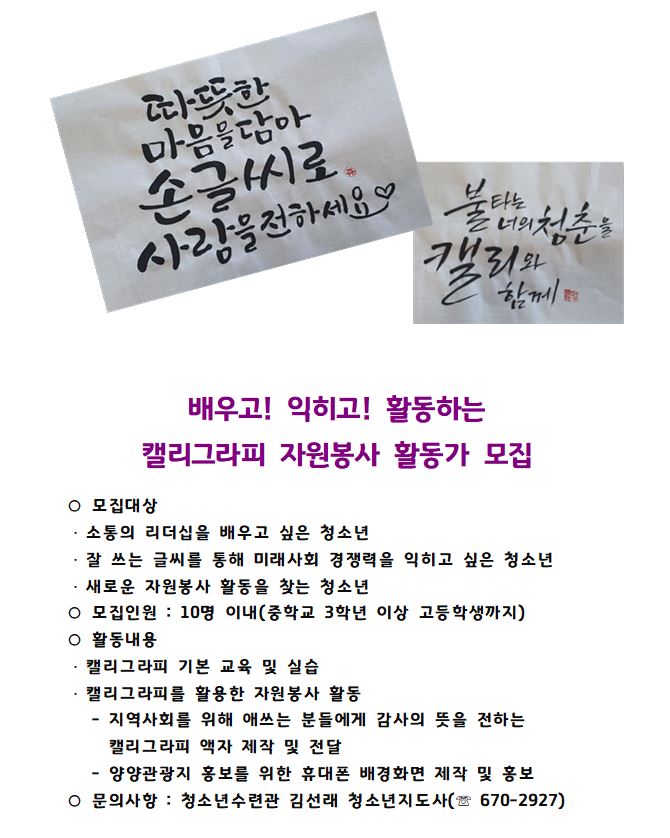 따뜻한
마음을담아
손글씨로
사람을전하세요
불타는
너의청춘을
캘리와
함께
배우고! 익히고! 활동하는
캘리그라피 자원봉사 활동가 모집
○ 모집대상
· 소통의 리더십을 배우고 싶은 청소년
· 잘 쓰는 글씨를 통해 미래사회 경쟁력을 익히고 싶은 청소년
· 새로운 자원봉사 활동을 찾는 청소년
○ 모집인원 : 10명 이내(중학교 3학년 이상 고등학생까지)
○ 활동내용
· 캘리그라피 기본 교육 및 실습
· 캘리그라피를 활용한 자원봉사 활동
- 지역사회를 위해 애쓰는 분들에게 감사의 뜻을 전하는
캘리그라피 액자 제작 및 전달
- 양양관광지 홍보를 위한 휴대폰 배경화면 제작 및 홍보
○ 문의사항 : 청소년수련관 김선래 청소년지도사(☏ 670-2927)